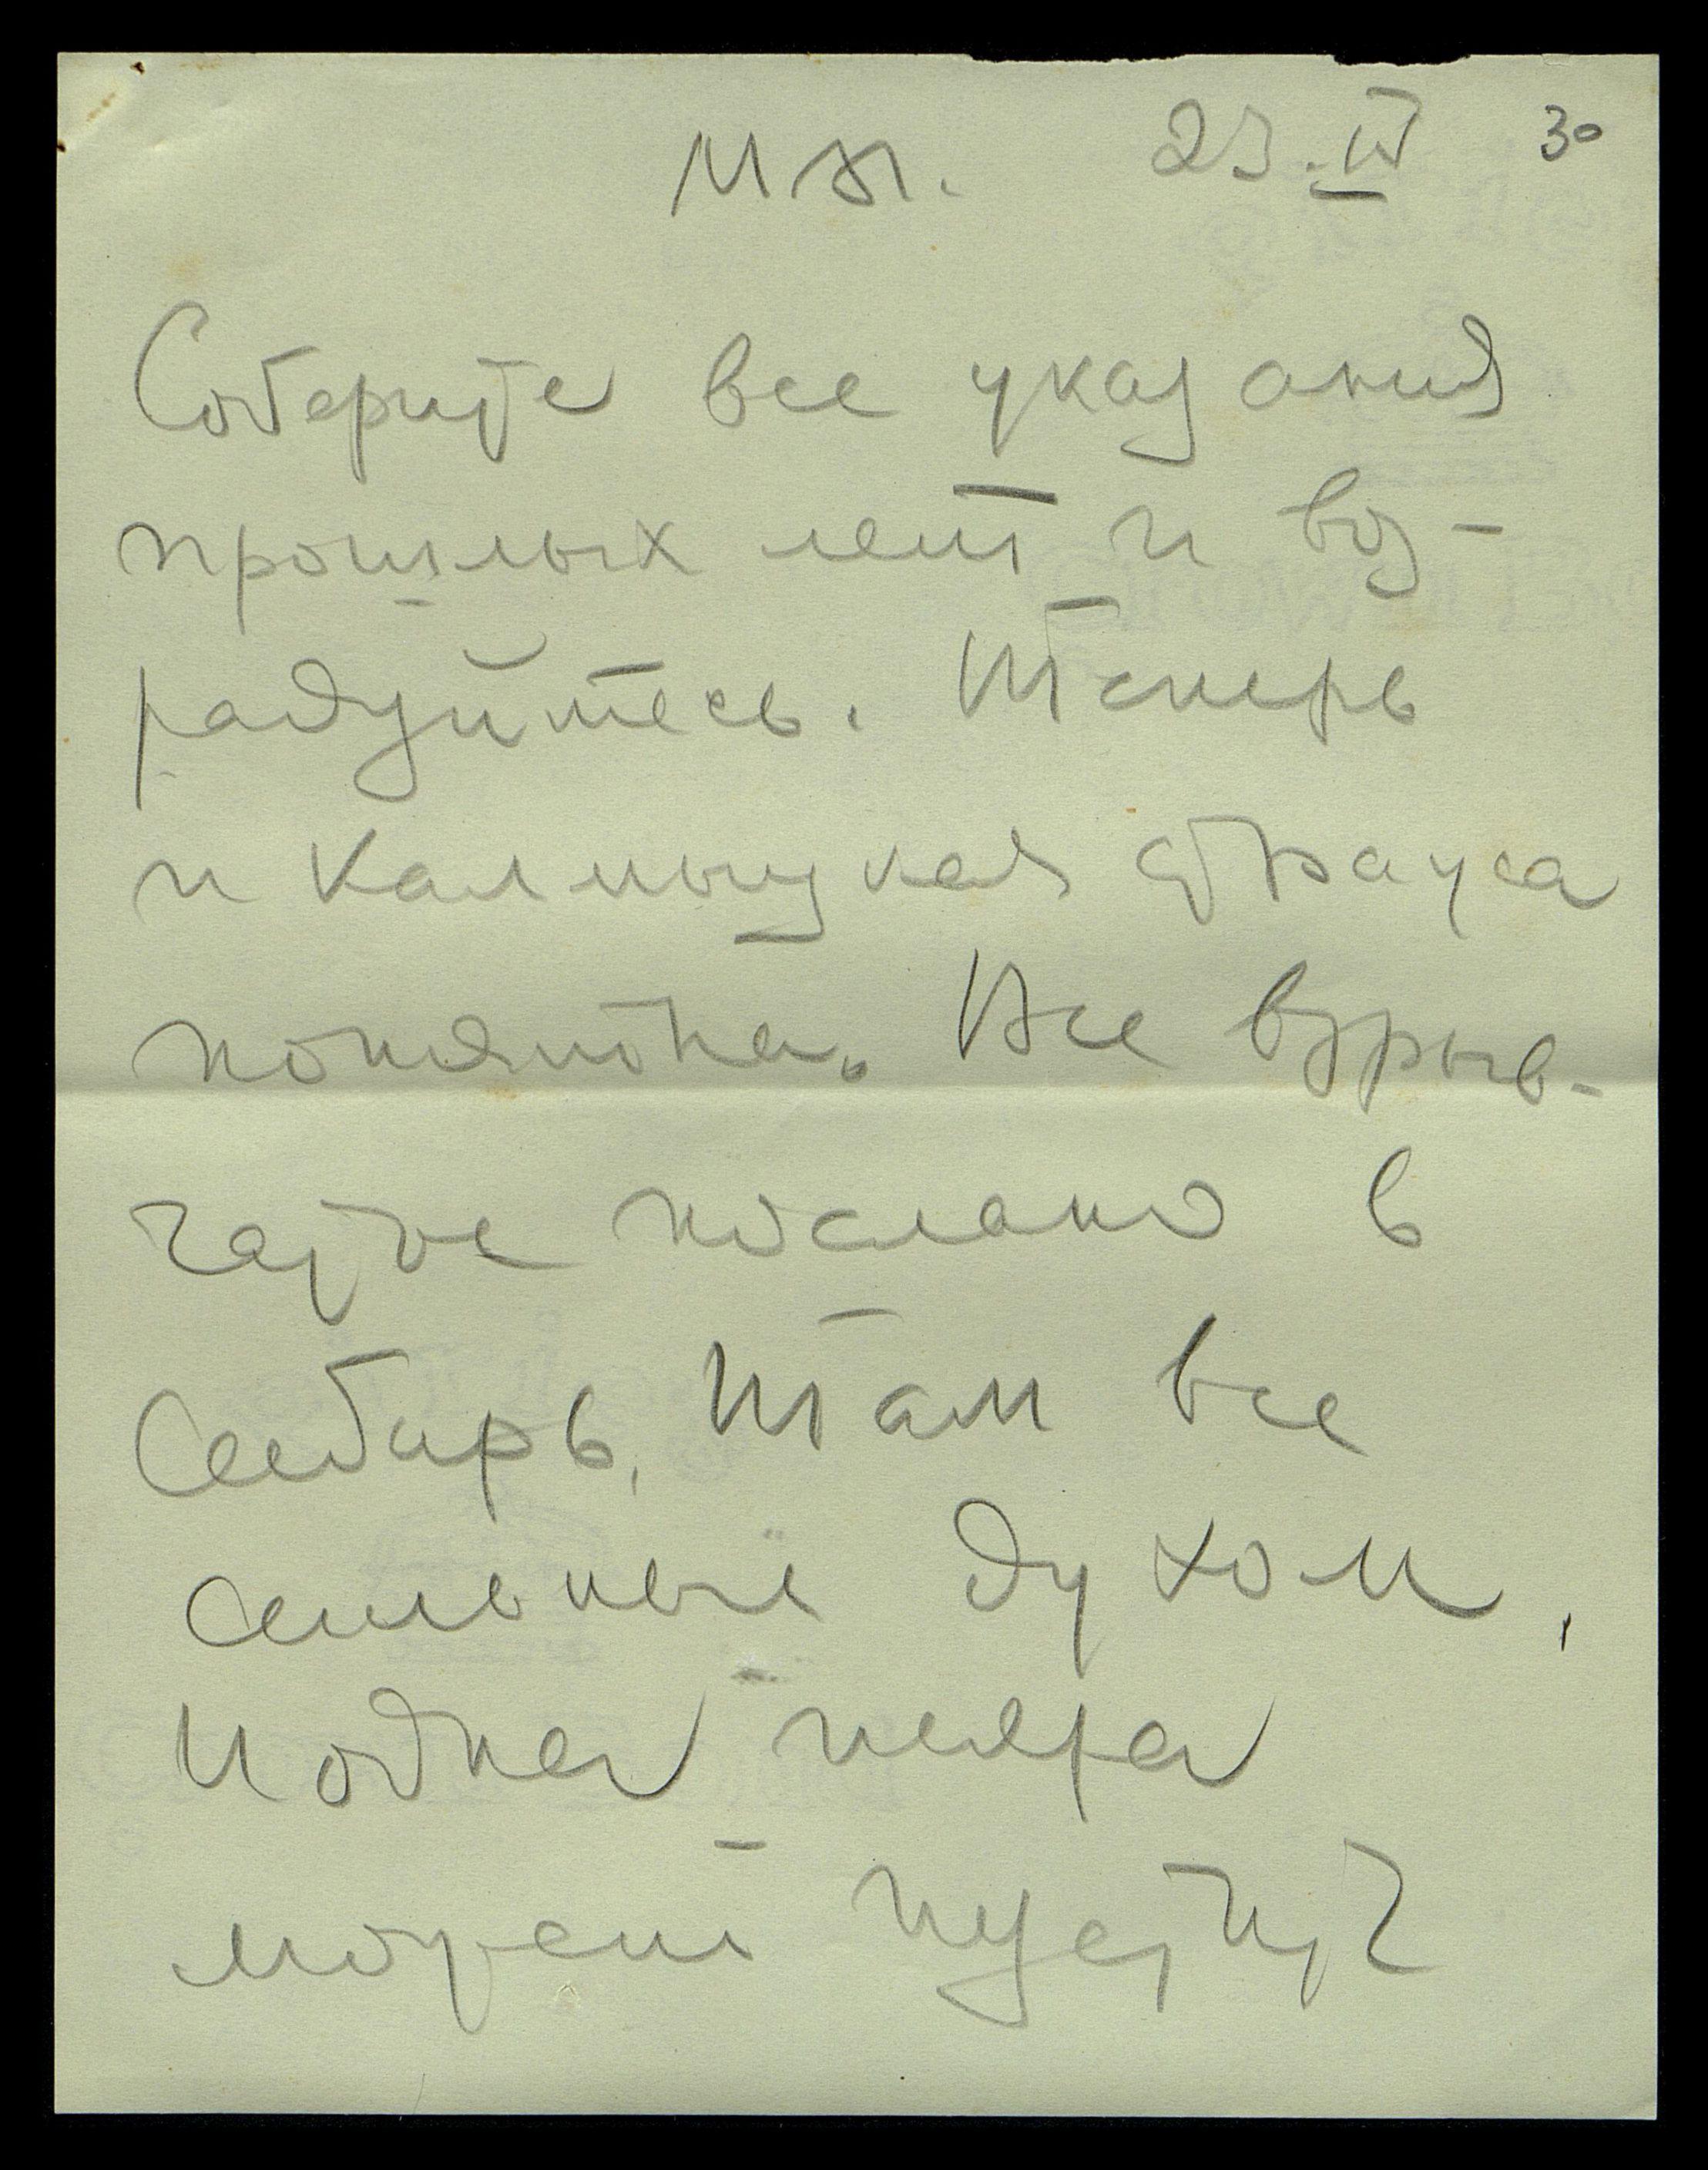 23.IV 30
Соберите все указания
прошлых лет и воз-
радуйтесь. Теперь
и Калмыцкая
понятна. Все взрыв-
чатое послано в
Сибирь. Там все
сильные духом.
И одна
может пустить